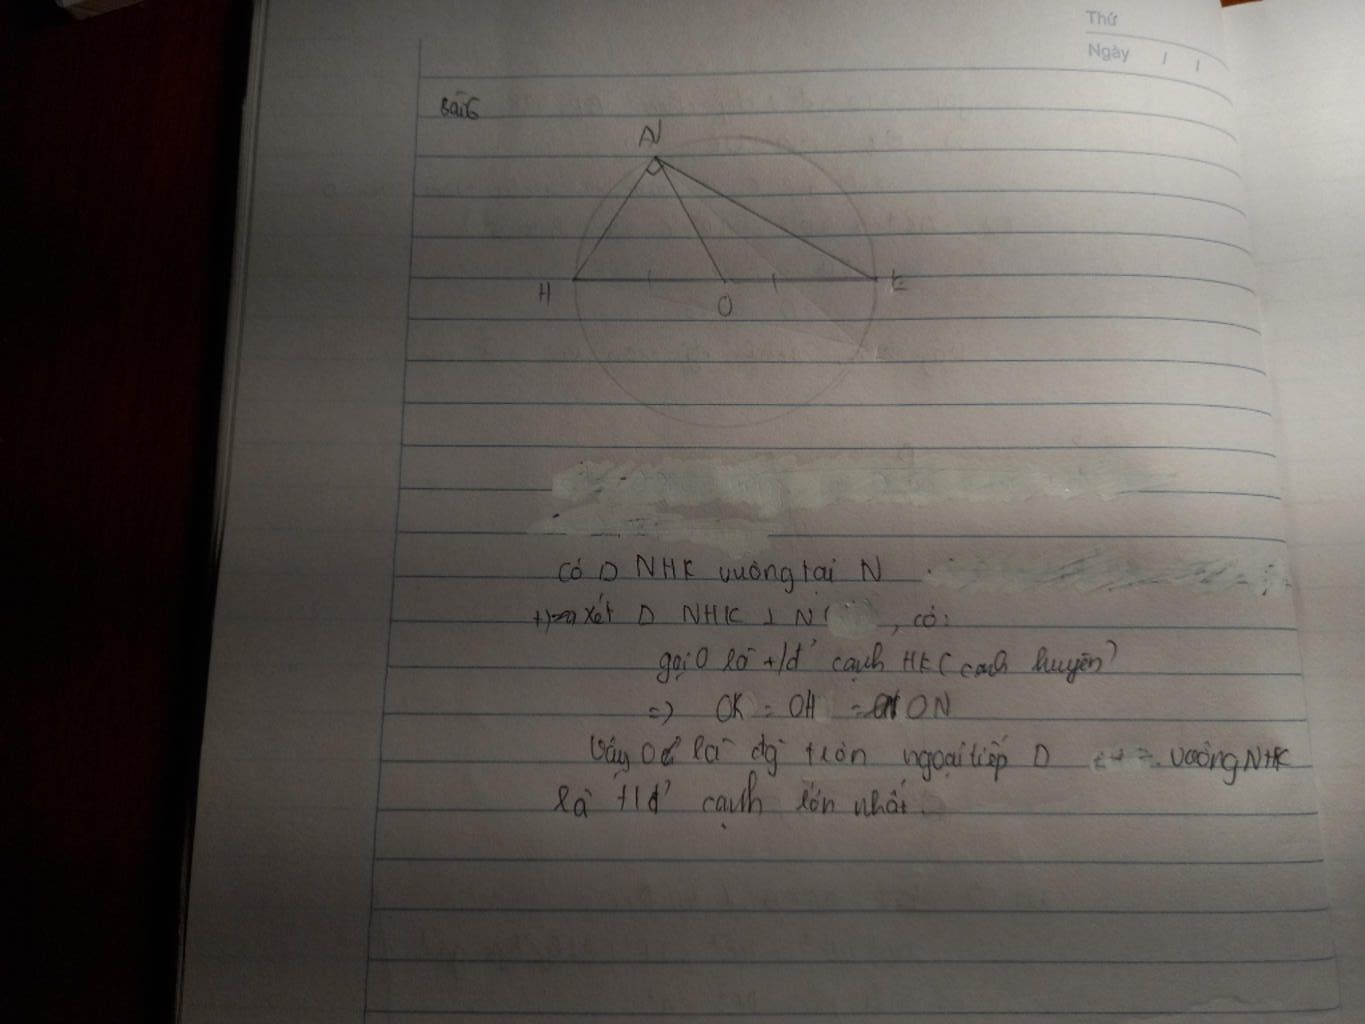 Thứ
Ngày / /
Bài 6
N
H
O
K
Có Δ NHK vuông tại N
+) Xét Δ NHK ⊥ N , có:
gọi O là t/đ' cạnh HK (cạnh huyền)
=) OK = OH = ON
Vậy O là đg tròn ngoại tiếp Δ vuông NHK
là t/đ' cạnh lớn nhất.